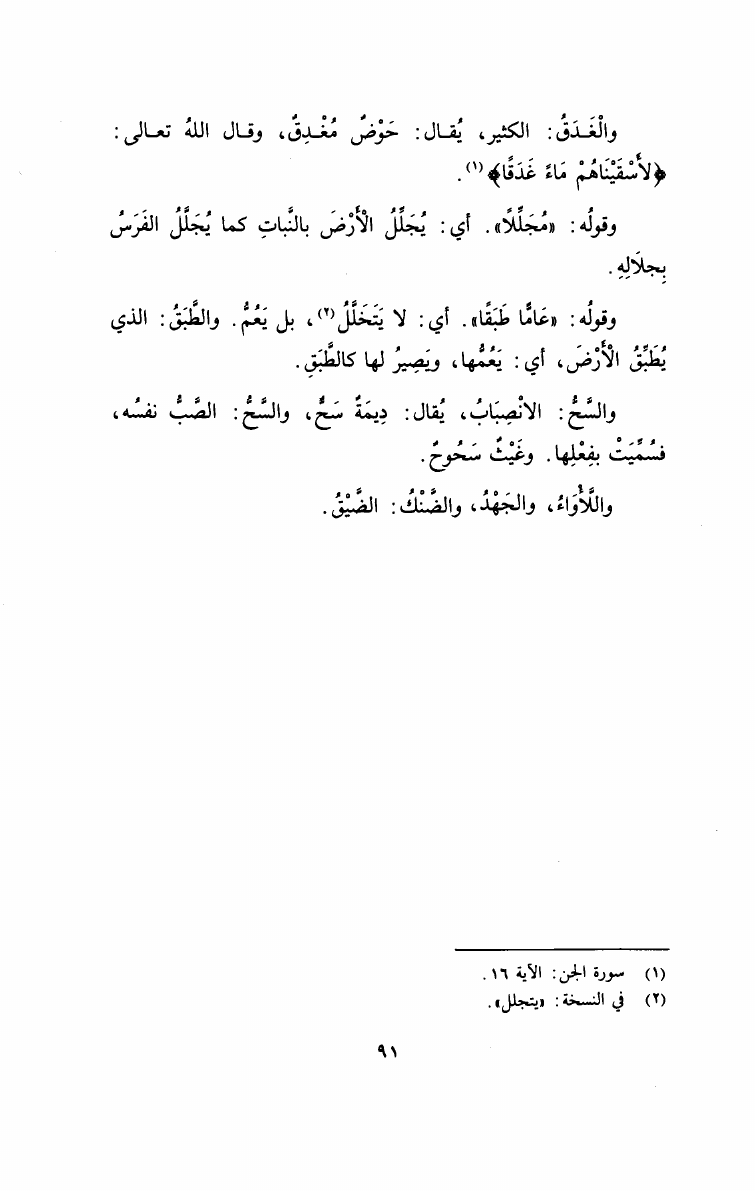 والْغَـدَقُ: الكثير، يُقـال: حَوْضٌ مُغْـدِقٌ، وقـال اللهُ تعـالى:
﴿لأَسْقَيْنَاهُمْ مَاءً غَدَقًا﴾(١).
وقولُه: «مُجَلِّلاً». أي: يُجَلِّلُ الْأَرْضَ بالنَّباتِ كما يُجَلَّلُ الفَرَسُ
بِجلَالِهِ.
وقولُه: «عَامًّا طَبَقًا». أي: لا يَتَخَلَّلُ(٢)، بل يَعُمُّ. والطَّبَقُ: الذي
يُطَبِّقُ الْأَرْضَ، أي: يَعُمُّها، ويَصِيرُ لها كالطَّبَقِ.
والسَّحُّ: الانْصِبَابُ، يُقال: دِيمَةٌ سَحٌّ، والسَّحُّ: الصَّبُّ نفسُه،
فسُمِّيَتْ بفِعْلِها. وغَيْثٌ سَحُوحٌ.
واللَّأْوَاءُ، والجَهْدُ، والضَّنْكُ: الضَّيْقُ.
(١) سورة الجن: الآية ١٦.
(٢) في النسخة: «يتجلل».
٩١